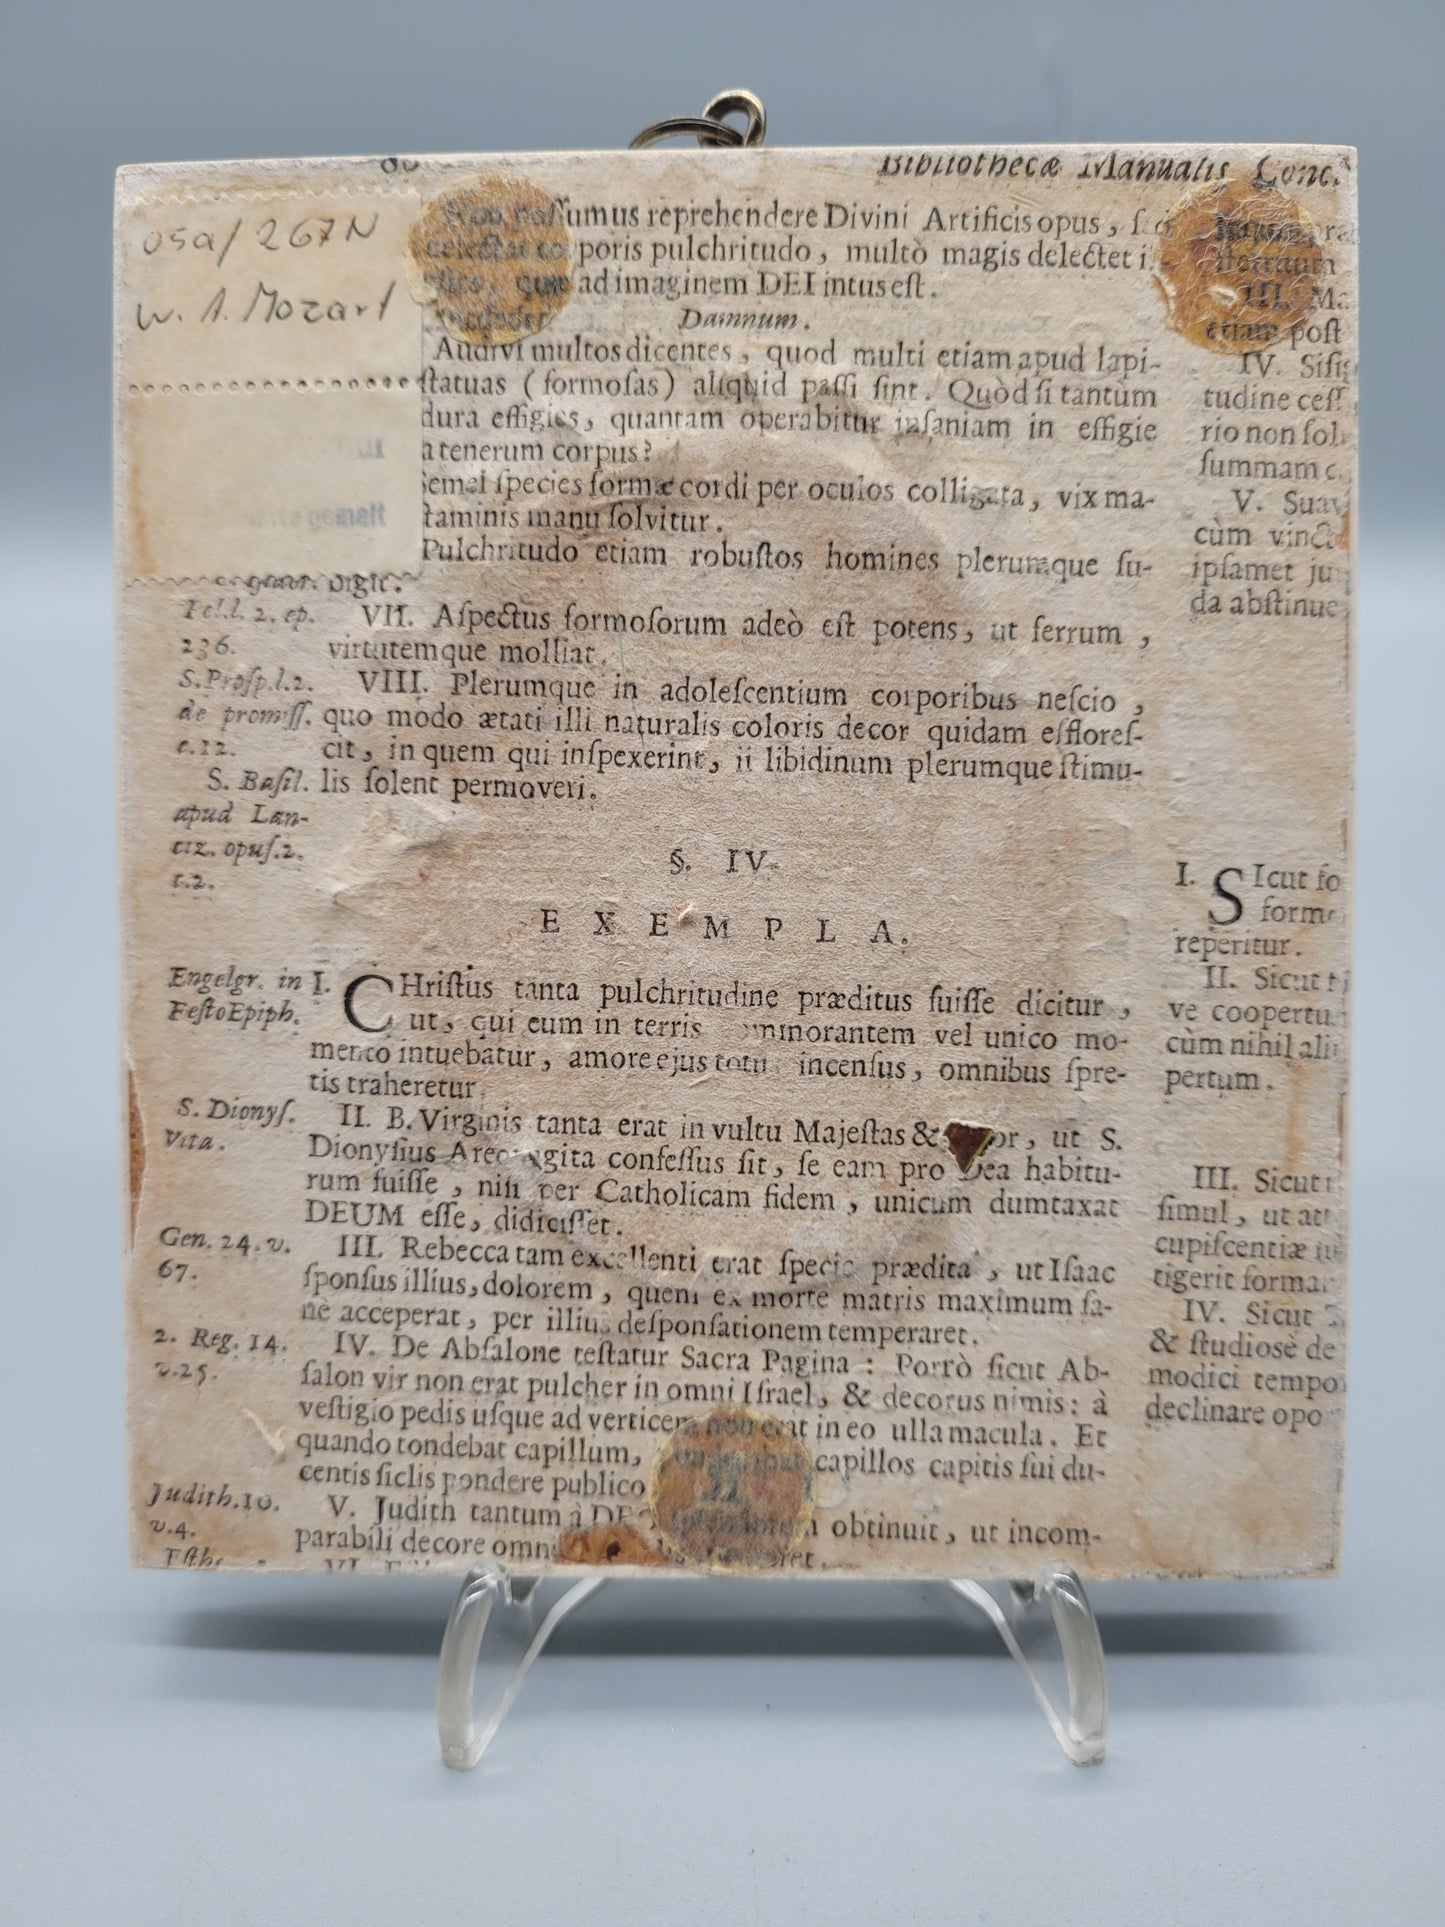 Bibliothecæ Manualis Conc.
osa/267N
W. A. Mozart
Non poſſumus reprehendere Divini Artificis opus, ſed
poris pulchritudo, multò magis delectet i
quæ ad imaginem DEI intus eſt.
Damnum.
Audivi multos dicentes, quod multi etiam apud lapi-
ſtatuas (formoſas) aliquid paſſi ſint. Quòd ſi tantùm
dura effigies, quantam operabitur inſaniam in effigie
a tenerum corpus?
ſemel ſpecies formæ cordi per oculos colligata, vix ma-
taminis manu ſolvitur.
Pulchritudo etiam robuſtos homines plerumque ſu-
digit.
Pel. l. 2. ep.
236.
VII. Aſpectus formoſorum adeò eſt potens, ut ferrum,
virtutemque molliat.
S. Proſp. l. 2.
de promiſſ.
c. 12.
VIII. Plerumque in adoleſcentium corporibus neſcio,
quo modo ætati illi naturalis coloris decor quidam effloreſ-
cit, in quem qui inſpexerint, ii libidinum plerumque ſtimu-
lis ſolent permoveri.
S. Baſil.
apud Lan-
ciz. opuſ. 2.
c. 2.
§. IV.
EXEMPLA.
Engelgr. in
Feſto Epiph.
I. CHriſtus tanta pulchritudine præditus fuiſſe dicitur,
ut, qui eum in terris mmorantem vel unico mo-
mento intuebatur, amore ejus totu incenſus, omnibus ſpre-
tis traheretur.
S. Dionyſ.
Vita.
II. B. Virginis tanta erat in vultu Majeſtas & or, ut S.
Dionyſius Areopagita confeſſus ſit, ſe eam pro Dea habitu-
rum fuiſſe, niſi per Catholicam fidem, unicum dumtaxat
DEUM eſſe, didiciſſet.
Gen. 24. v.
67.
III. Rebecca tam excellenti erat ſpecie prædita, ut Iſaac
ſponſus illius, dolorem, quem ex morte matris maximum ſa-
nè acceperat, per illius deſponſationem temperaret.
2. Reg. 14.
v. 25.
IV. De Abſalone teſtatur Sacra Pagina: Porrò ſicut Ab-
ſalon vir non erat pulcher in omni Iſrael, & decorus nimis: à
veſtigio pedis uſque ad verticem non erat in eo ulla macula. Et
quando tondebat capillum, capillos capitis ſui du-
centis ſiclis pondere publico
Judith. 10.
v. 4.
V. Judith tantum à DEO ſplendorem obtinuit, ut incom-
parabili decore omni
Eſth.
VI.
III. Ma
etiam poſt
IV. Siſi
tudine ceſſ
rio non ſol
ſummam c
V. Suav
cùm vinct
ipſamet ju
da abſtinue
I. SIcut fo
form
reperitur.
II. Sicut
ve coopertu
cùm nihil ali
pertum.
III. Sicut
ſimul, ut at
cupiſcentiæ
tigerit forma
IV. Sicut
& ſtudiosè de
modici tempo
declinare opo